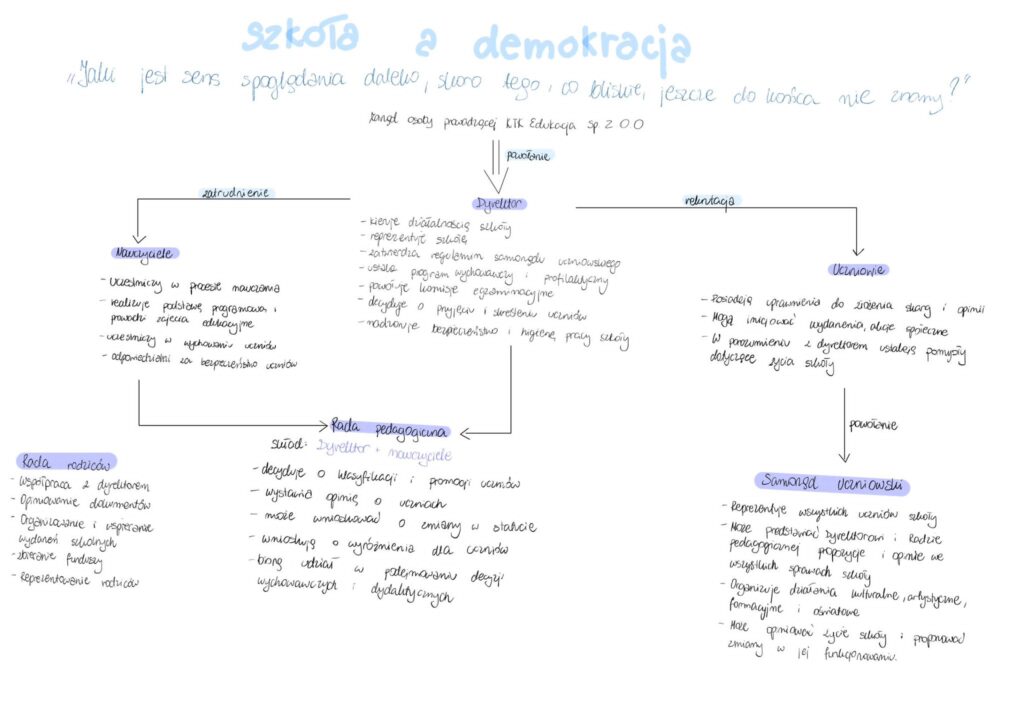 szkoła a demokracja
"Jaki jest sens spoglądania daleko, skoro tego, co bliskie, jeszcze do końca nie znamy?"
Zarząd osoby prowadzącej KTK Edukacja Sp Z O O
powołanie
zatrudnienie
Dyrektor
rekrutacja
- kieruje działalnością szkoły
- reprezentuje szkołę
- zatwierdza regulamin samorządu uczniowskiego
- ustala program wychowawczy i profilaktyczny
- powołuje komisje egzaminacyjne
- decyduje o przyjęciu i skreśleniu uczniów
- nadzoruje bezpieczeństwo i higienę pracy szkoły
Nauczyciele
- uczestniczy w procesie nauczania
- realizuje podstawę programową i
prowadzi zajęcia edukacyjne
- uczestniczy w wychowaniu uczniów
- odpowiedzialni za bezpieczeństwo uczniów
Uczniowie
- Posiadają uprawnienia do złożenia skarg i opinii
- Mogą inicjować wydarzenia, akcje społeczne
- W porozumieniu z dyrektorem ustalają pomysły
dotyczące życia szkoły
powołanie
Rada pedagogiczna
skład: Dyrektor + nauczyciele
- decyduje o klasyfikacji i promocji uczniów
- wystawia opinię o uczniach
- może wnioskować o zmiany w statucie
- wnioskują o wyróżnienia dla uczniów
- biorą udział w podejmowaniu decyzji
wychowawczych i dydaktycznych
Rada rodziców
- Współpraca z dyrektorem
- Opiniowanie dokumentów
- Organizowanie i wspieranie
wydarzeń szkolnych
- zbieranie funduszy
- Reprezentowanie rodziców
Samorząd Uczniowski
- Reprezentuje wszystkich uczniów szkoły
- Może przedstawiać Dyrektorowi i Radzie
pedagogicznej propozycje i opinie we
wszystkich sprawach szkoły
- Organizuje działania kulturalne, artystyczne,
formacyjne i oświatowe
- Może opiniować życie szkoły i proponować
zmiany w jej funkcjonowaniu.